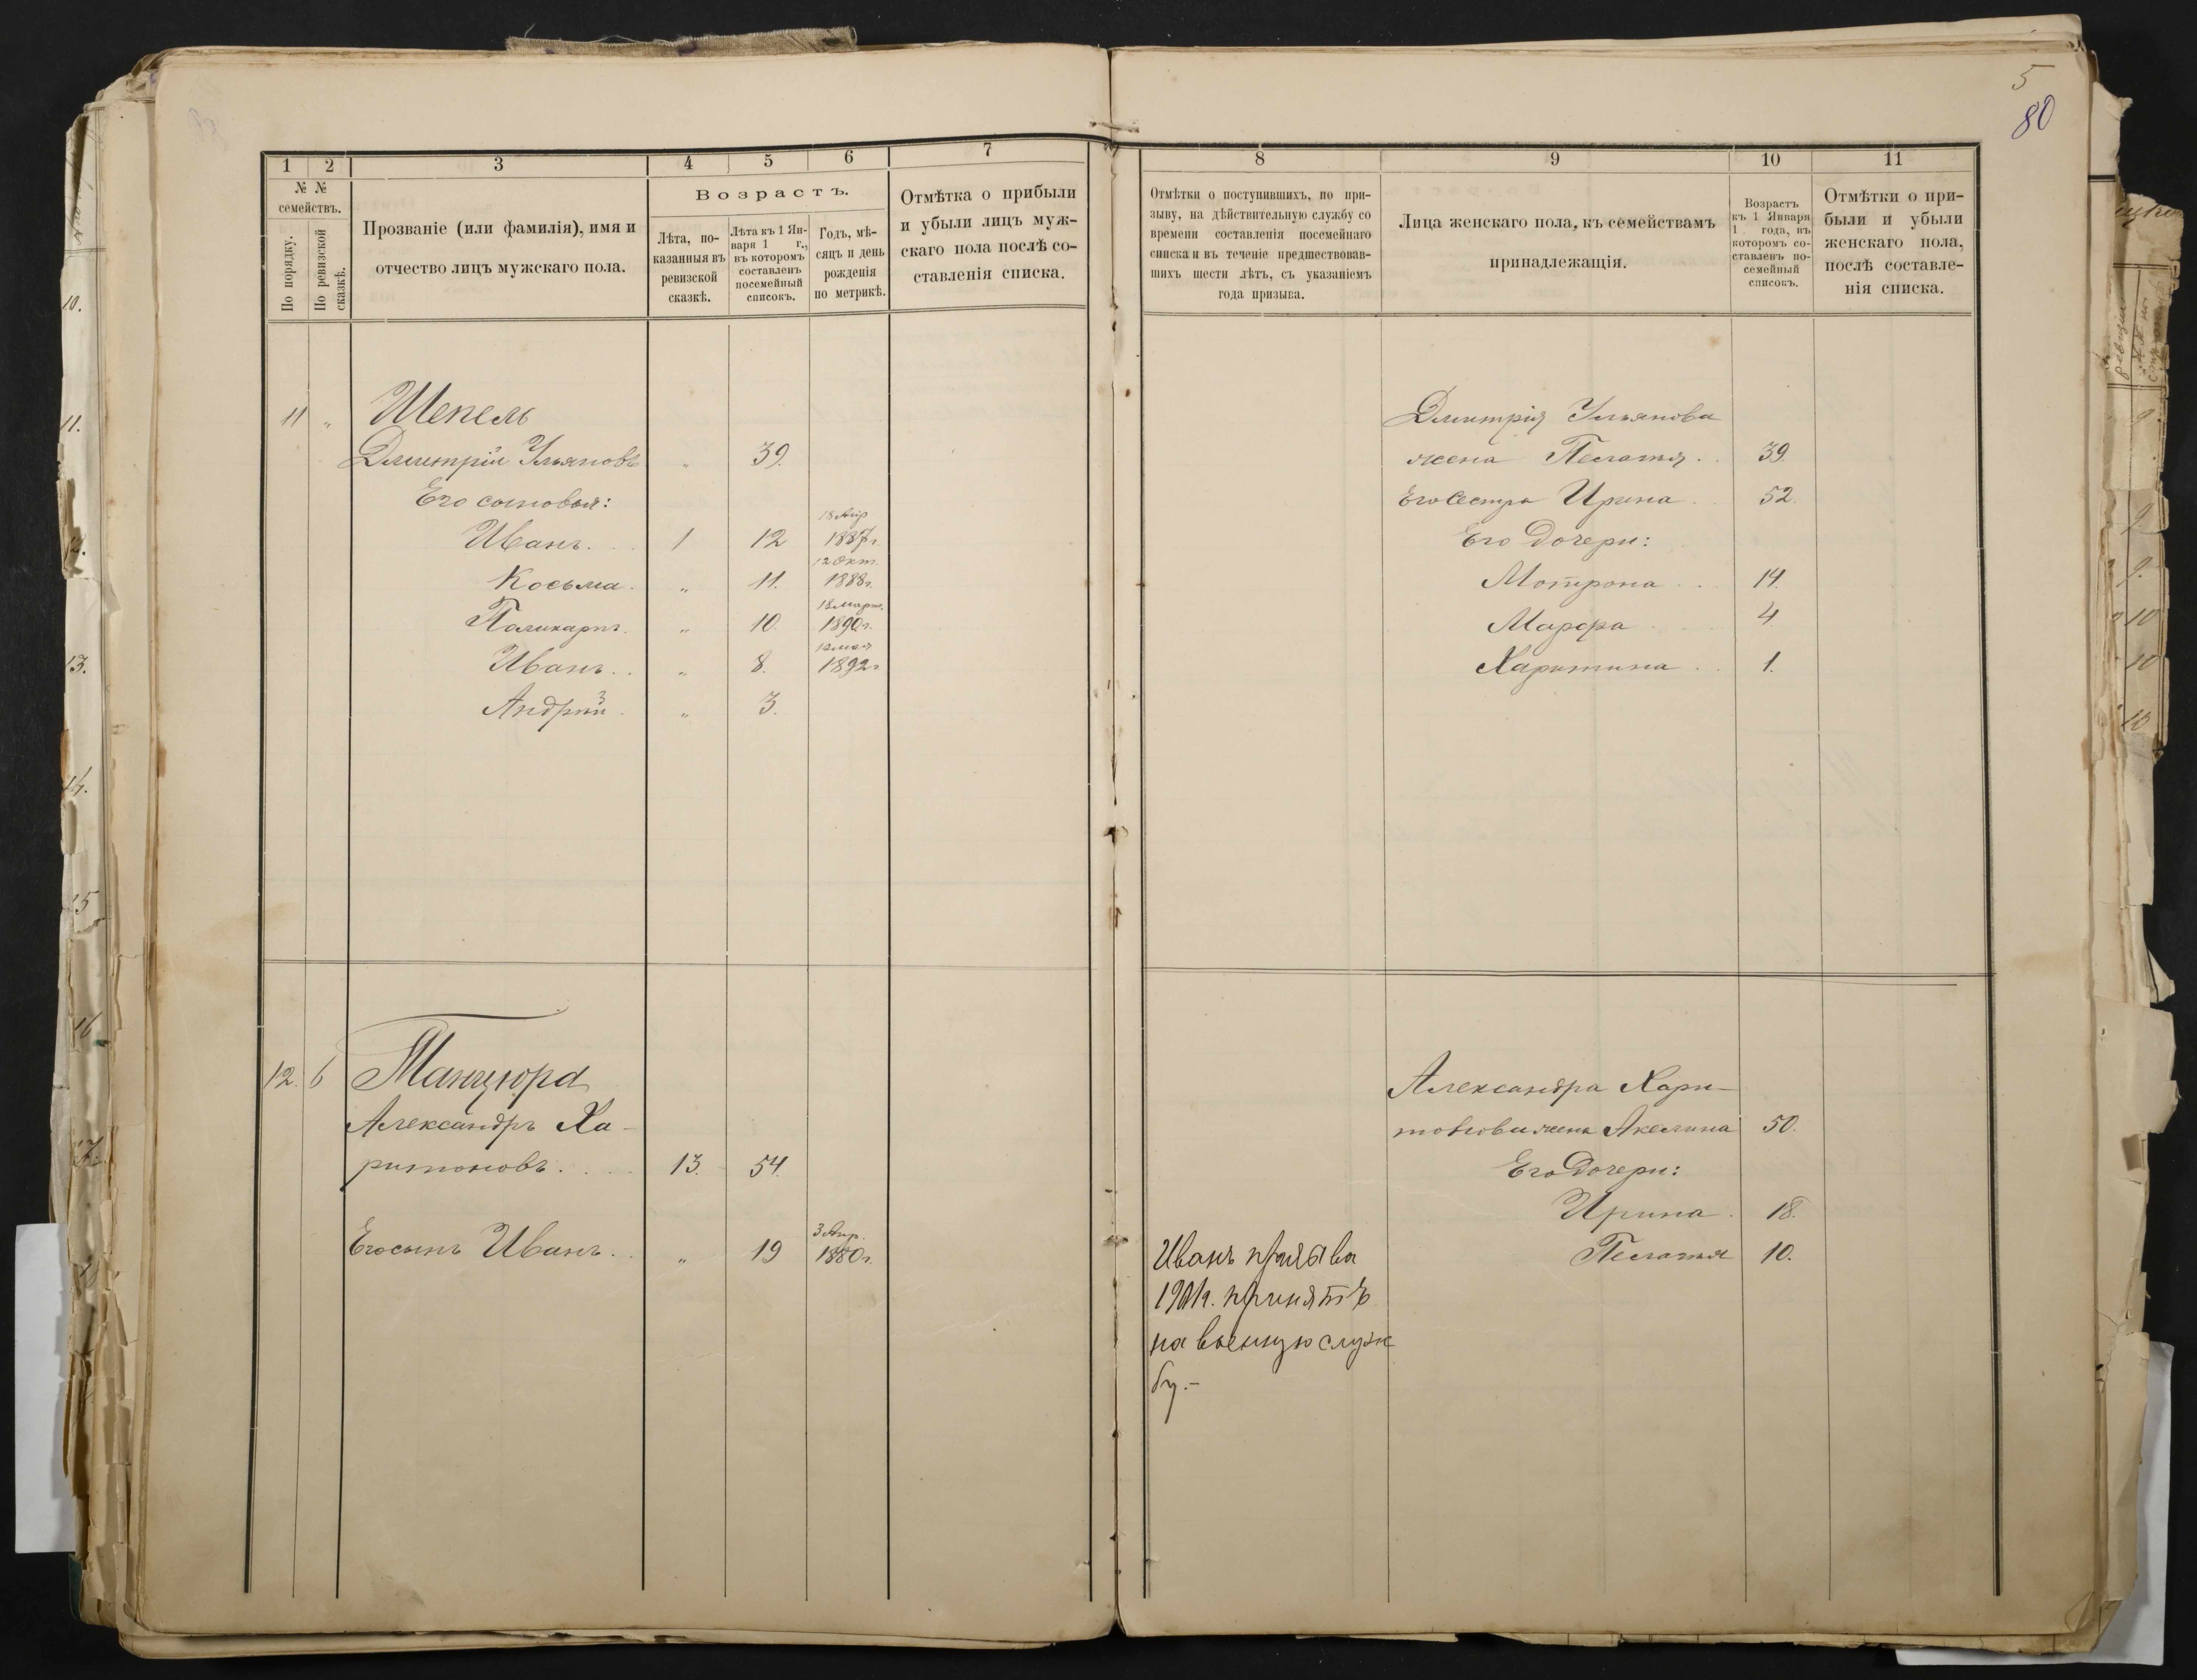 5
80
1 2 3 4 5 6 7
№ №
семействъ.
По порядку.
По ревизской
сказкѣ.
Прозваніе (или фамилія), имя и
отчество лицъ мужскаго пола.
Возрастъ.
Лѣта, по-
казанныя въ
ревизской
сказкѣ.
Лѣта къ 1 Ян-
варя 1 г.,
въ которомъ
составленъ
посемейный
списокъ.
Годъ, мѣ-
сяцъ и день
рожденія
по метрикѣ.
Отмѣтка о прибыли
и убыли лицъ муж-
скаго пола послѣ со-
ставленія списка.
11 „ Шепель
Дмитрій Ульяновъ „ 39.
Его сыновья:
18 Апр
Иванъ. 1 12 1887г.
12 Окт.
Косьма. „ 11. 1888г.
18 март.
Поликарпъ. „ 10. 1890г.
12 мая
Иванъ. „ 8. 1892г
Андрій „ 3.
12. 6 Танцюра
Александръ Ха-
ритоновъ. 13. 54.
3 Апр.
Его сынъ Иванъ. „ 19 1880г.
8 9 10 11
Отмѣтки о поступившихъ, по при-
зыву, на дѣйствительную службу со
времени составленія посемейнаго
списка и въ теченіе предшествовав-
шихъ шести лѣтъ, съ указаніемъ
года призыва.
Лица женскаго пола, къ семействамъ
принадлежащія.
Возрастъ
къ 1 Января
1 года, въ
которомъ со-
ставленъ по-
семейный
списокъ.
Отмѣтки о при-
были и убыли
женскаго пола,
послѣ составле-
нія списка.
Дмитрія Ульянова
жена Пелагия. 39.
Его Сестра Ирина 52.
Его Дочери:
Мотрона 14.
Марфа 4
Харитина 1.
Александра Хари-
тонова жена Акелина 50.
Его Дочери:
Ирина. 18.
Пелагия 10.
Иванъ призыва
1901г. принятъ
на военную служ
бу.-